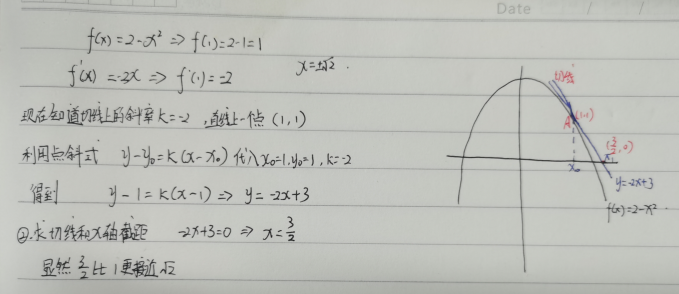 Date
f(x)=2-x² ⇒ f(1)=2-1=1
x=±√2.
f'(x)=-2x ⇒ f'(1)=-2
现在知道切线上的斜率k=-2,直线上一点(1,1)
利用点斜式 y-y₀=k(x-x₀) 代入x₀=1,y₀=1,k=-2
得到 y-1=k(x-1) ⇒ y=-2x+3
②.求切线和x轴截距 -2x+3=0 ⇒ x=3/2
显然 3/2 比 1 更接近√2
切线
A(1,1)
(3/2,0)
x₀
x₁
y=-2x+3
f(x)=2-x²